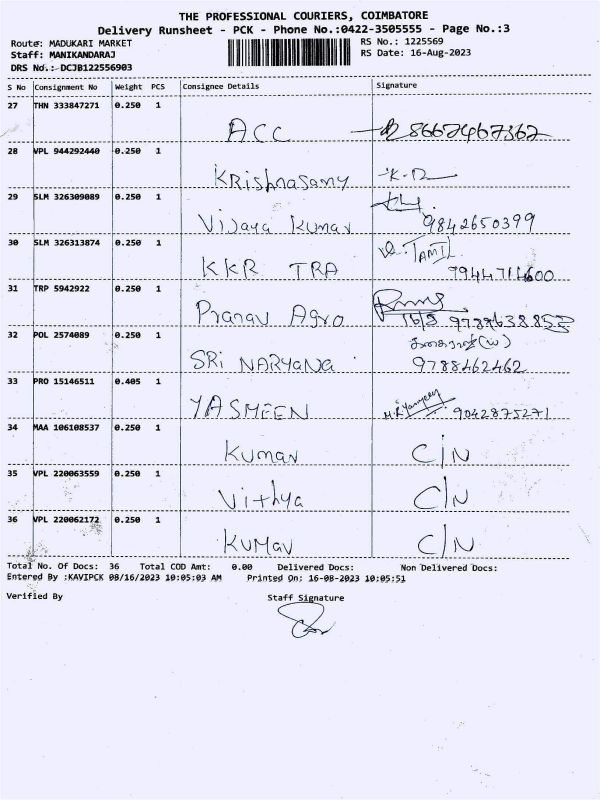 THE PROFESSIONAL COURIERS, COIMBATORE
Delivery Runsheet - PCK - Phone No.:0422-3505555 - Page No.:3
Route: MADUKARI MARKET RS No.: 1225569
Staff: MANIKANDARAJ RS Date: 16-Aug-2023
DRS No.:- DCJB122556903
S No Consignment No Weight PCS Consignee Details Signature
27 THN 333847271 0.250 1
ACC 8667467362
28 VPL 944292440 0.250 1
KRishnasamy K.R
29 SLM 326309089 0.250 1
Vijaya Kumar 9842650399
30 SLM 326313874 0.250 1
KKR TRA TAMIL
7944711600
31 TRP 5942922 0.250 1
Pranav Agro 16/8
32 POL 2574089 0.250 1
SRi NARyaNa 9788462462
33 PRO 15146511 0.405 1
YASMEEN 9042875271
34 MAA 106108537 0.250 1
Kumar C/N
35 VPL 220063559 0.250 1
Vithya C/N
36 VPL 220062172 0.250 1
KUMar C/N
Total No. Of Docs: 36 Total COD Amt: 0.00 Delivered Docs: Non Delivered Docs:
Entered By :KAVIPCK 08/16/2023 10:05:03 AM Printed On: 16-08-2023 10:05:51
Verified By Staff Signature